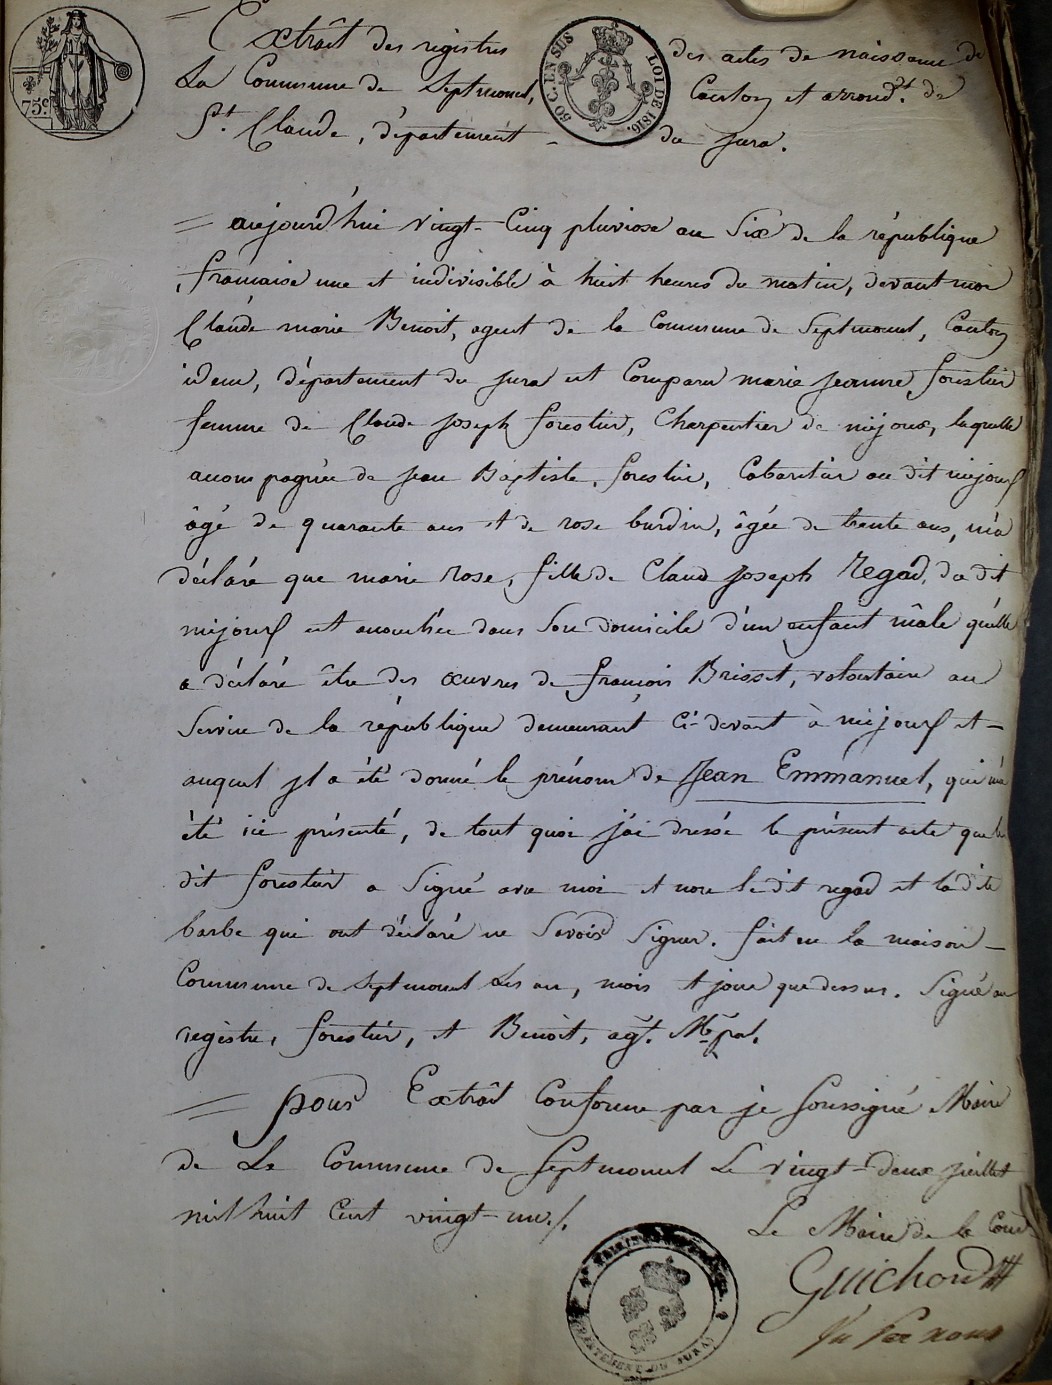 75 c.
50 C. EN SUS
LOI DE 1816.
Extrâit des registres des actes de naissance de
La Commune de Septmoncel, Canton et arrond.t de
S.t Claude, département du jura.
= aujourd'hui vingt-Cinq pluviose an Six de la république
française une et indivisible à huit heures du matin, devant moi
Claude marie Benoit, agent de la Commune de Septmoncel, Canton
idem, département du jura est Comparu marie jeanne forestier
femme de Claude joseph forestier, Charpentier de mijoux, laquelle
accompagnée de jean Baptiste forestier, Cabaretier au dit mijoux
âgé de quarante ans et de rose burdin, âgée de trente ans, m'a
déclaré que marie rose, fille de Claud joseph regad, du dit
mijoux est accouchée dans Son domicile d'un enfant mâle qu'elle
a déclaré être des œuvres de françois Brisset, volontaire au
Service de la république demeurant Ci-devant à mijoux et -
auquel jl a été donné le prénom de Jean Emmanuel, qui m'a
été ici présenté, de tout quoi j'ai dressé le présent acte que le
dit forestier a Signé avec moi et non le dit regad et la dite
barbe qui ont déclaré ne Savoir Signer. fait en la maison -
Commune de Septmoncel Les an, mois et jour que dessus. Signé au
registre, forestier, et Benoit, ag.t M.pal.
= pour Extrâit Conforme par je soussigné Maire
de La Commune de Septmoncel Le vingt-deux juillet
mil huit Cent vingt-un./.
Le Maire de la Com.
Guichard
Vu par nous
DÉPARTEMENT DU JURA